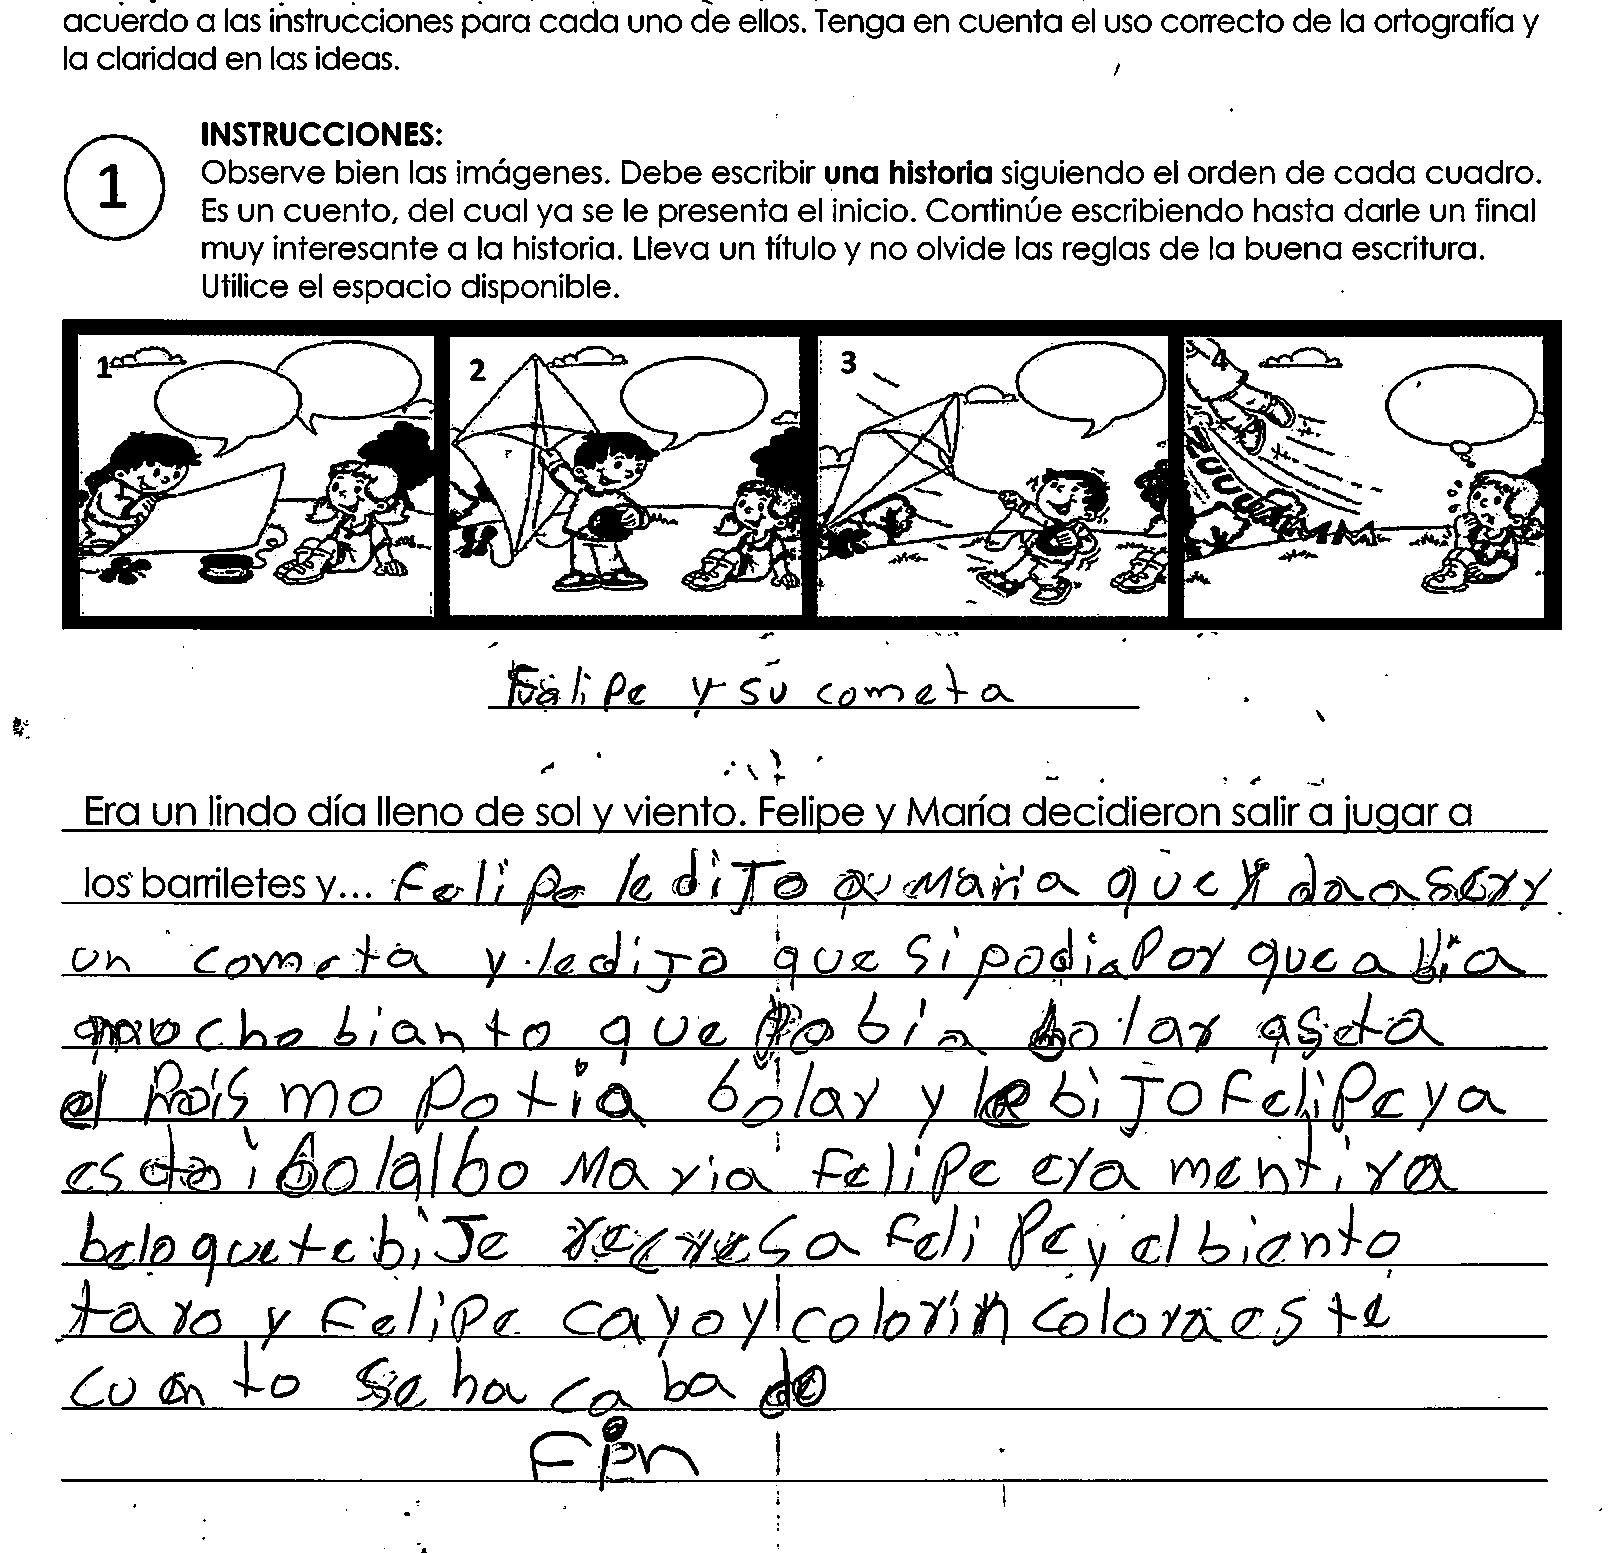 acuerdo a las instrucciones para cada uno de ellos. Tenga en cuenta el uso correcto de la ortografía y
la claridad en las ideas.
1
INSTRUCCIONES:
Observe bien las imágenes. Debe escribir una historia siguiendo el orden de cada cuadro.
Es un cuento, del cual ya se le presenta el inicio. Continúe escribiendo hasta darle un final
muy interesante a la historia. Lleva un título y no olvide las reglas de la buena escritura.
Utilice el espacio disponible.
1 2 3 4
Felipe y su cometa
Era un lindo día lleno de sol y viento. Felipe y María decidieron salir a jugar a
los barriletes y... Felipe le diJo a Maria que
un cometa y le diJo que si podia Por que a bia
mucho bianto que bolar asta
el mo Potia bolar y le biJo Felipe ya
bolalbo Maria Felipe era mentira
belo que te biJe Felipe y el bianto
taro y Felipe cayo y colorin colora este
cuento se ha ca ba do
Fin